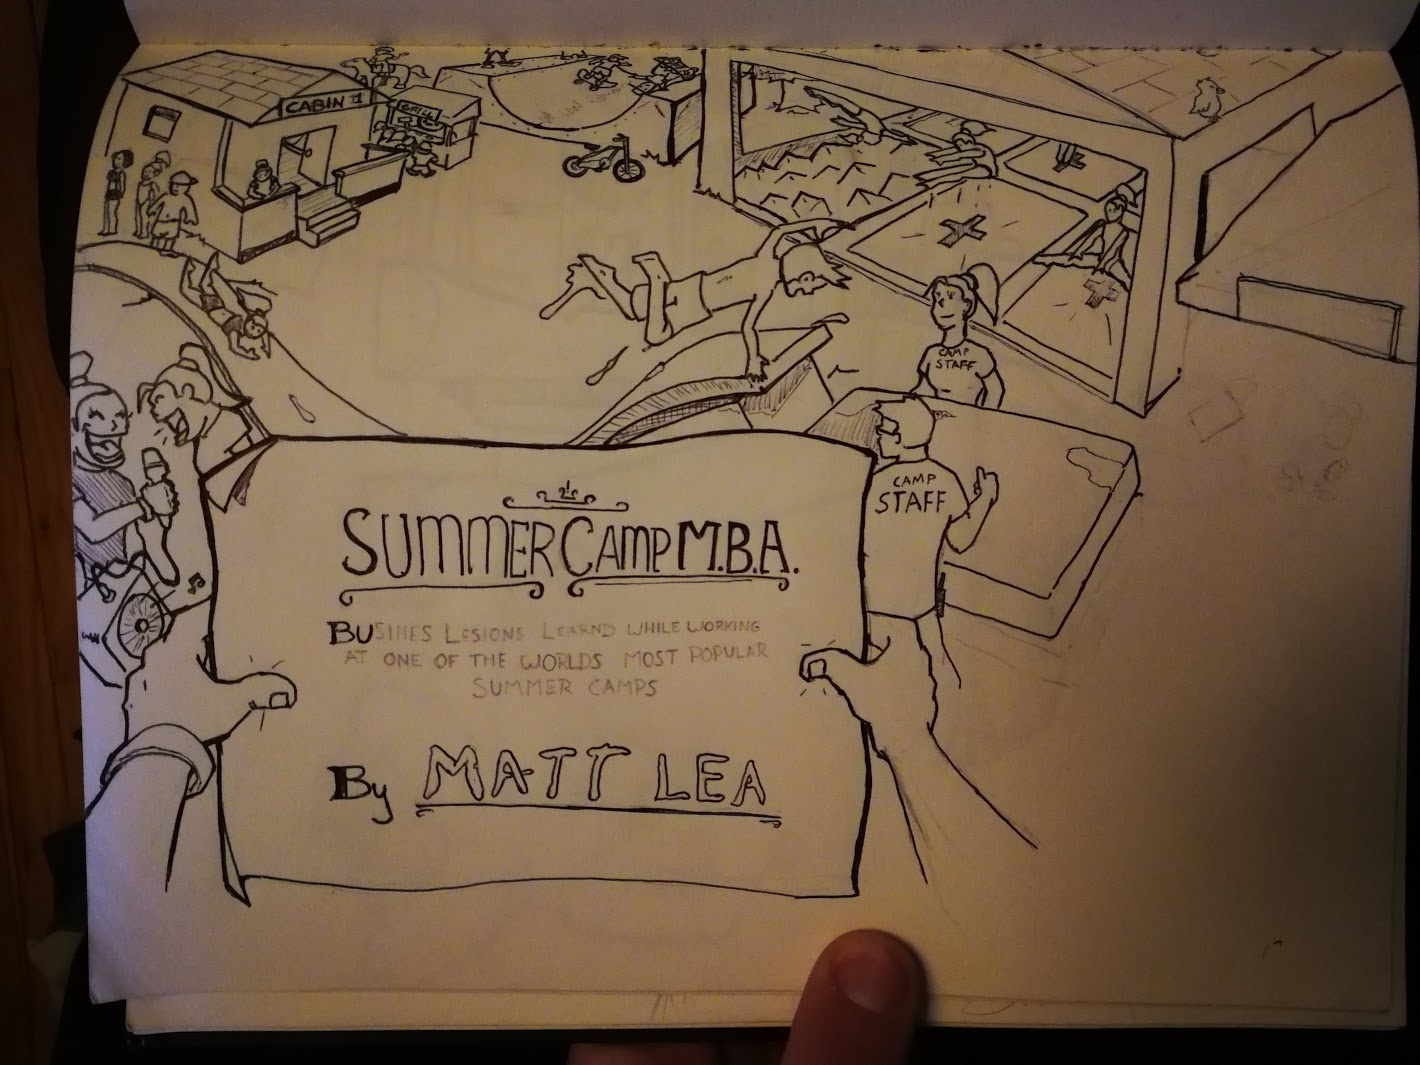 CABIN 1
CAMP
STAFF
CAMP
STAFF
SUMMER CAMP M.B.A.
BUSINES LESIONS LEARND WHILE WORKING
AT ONE OF THE WORLDS MOST POPULAR
SUMMER CAMPS
By MATT LEA